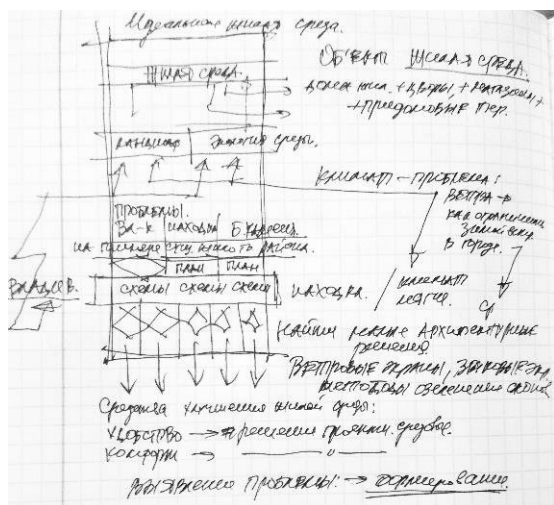 Идеальная жилая среда.
Объект жилая среда.
жилая среда
+ цветы, + магазины +
+ придомовые тер.
ландшаф экология среды.
климат – проблема:
ветра →
как ограничить
в городе.
проблемы.
Вл-к находка Б. Камень
на примере сущ. жилого района.
план план
схемы схемы схемы
находка. климат
мягче.
ср
найти новые архитектурные
решения
ветровые экраны, звуковые эк
Средства улучшения жилой среды:
удобство → решения проектн. средовое.
комфорт → — " —
выявление проблемы: →